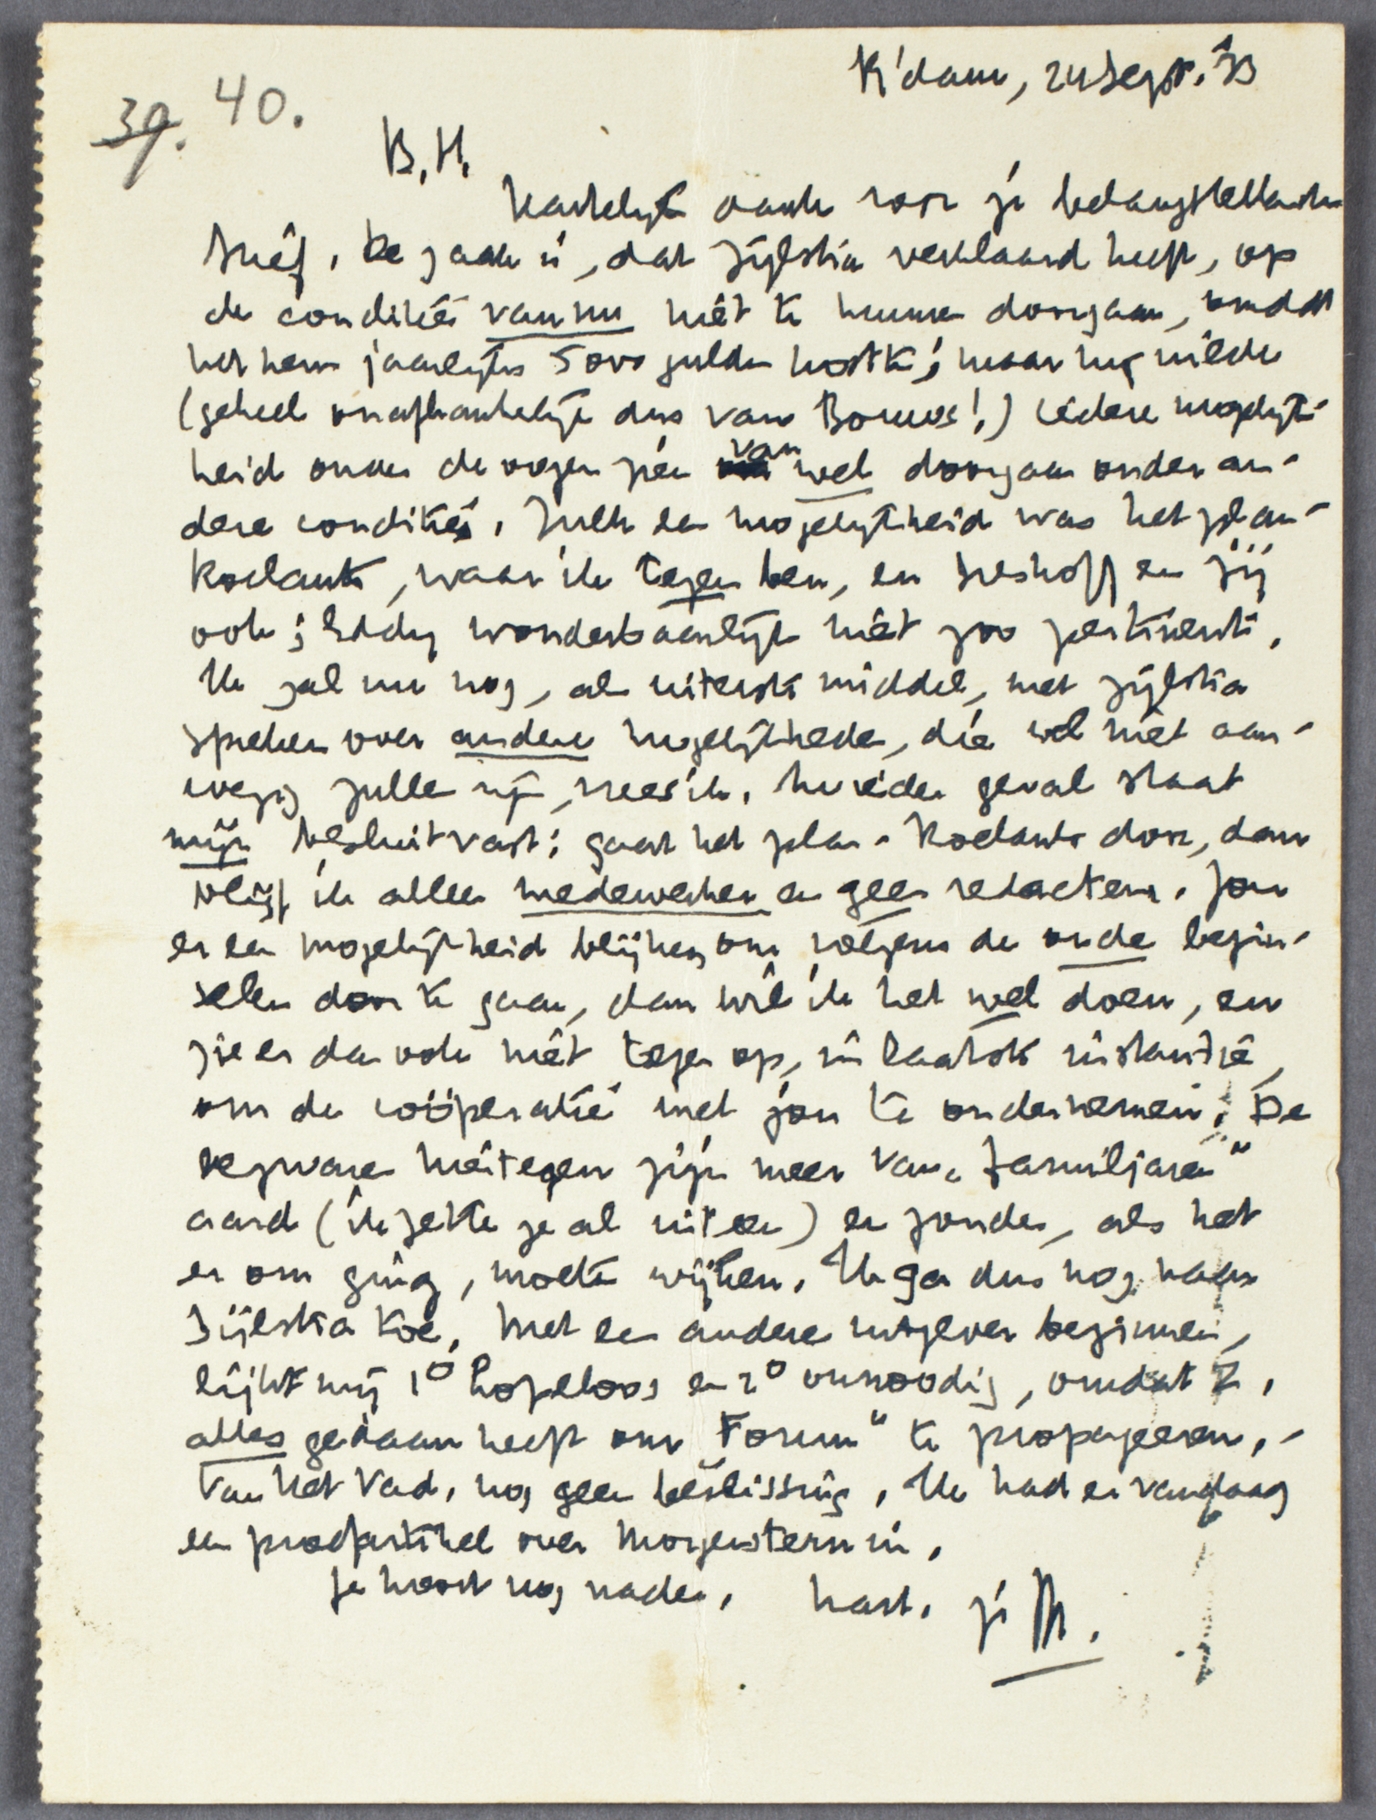 R'dam, 24 Sept. '33
39. 40.
B.H.
Hartelijk dank voor je belangstellenden
brief. De zaak is, dat Zijlstra verklaard heeft, op
de condities van nu niet te kunnen doorgaan, omdat
het hem jaarlijks 5000 gulden kostte; maar nog wilde
(geheel onafhankelijk dus van Bouws!) iedere mogelijk-
heid onder de oogen zien van wel doorgaan onder an-
dere condities. Zulk een mogelijkheid was het plan-
Roelants, waar ik tegen ben, en Greshoff en jij
ook; Eddy wonderbaarlijk niet zoo pertinent.
Ik zal nu nog, als uiterste middel, met Zijlstra
spreken over andere mogelijkheden, die wel niet aan-
wezig zullen zijn, vrees ik. In ieder geval staat
mijn besluit vast: gaat het plan-Roelants door, dan
blijf ik alleen medewerker en geen redacteur. Zou
er een mogelijkheid blijken om volgens de oude begin-
selen door te gaan, dan wil ik het wel doen, en
zie er dan ook niet tegen op, in laatste instantie,
om de coöperatie met jou te ondernemen. De
bezwaren hiertegen zijn meer van „familjaren"
aard (ik zette je al uiteen) en zouden, als het
er om ging, moeten wijken. Ik ga dus nog naar
Zijlstra toe. Met een andere uitgever beginnen,
lijkt mij 1° hopeloos en 2° onnoodig, omdat Z.
alles gedaan heeft om „Forum" te propageeren.-
Van Het Vad. nog geen beslissing. Ik had er vandaag
een proefartikel over Morgenstern in.
Je hoort nog nader. hart. je M.